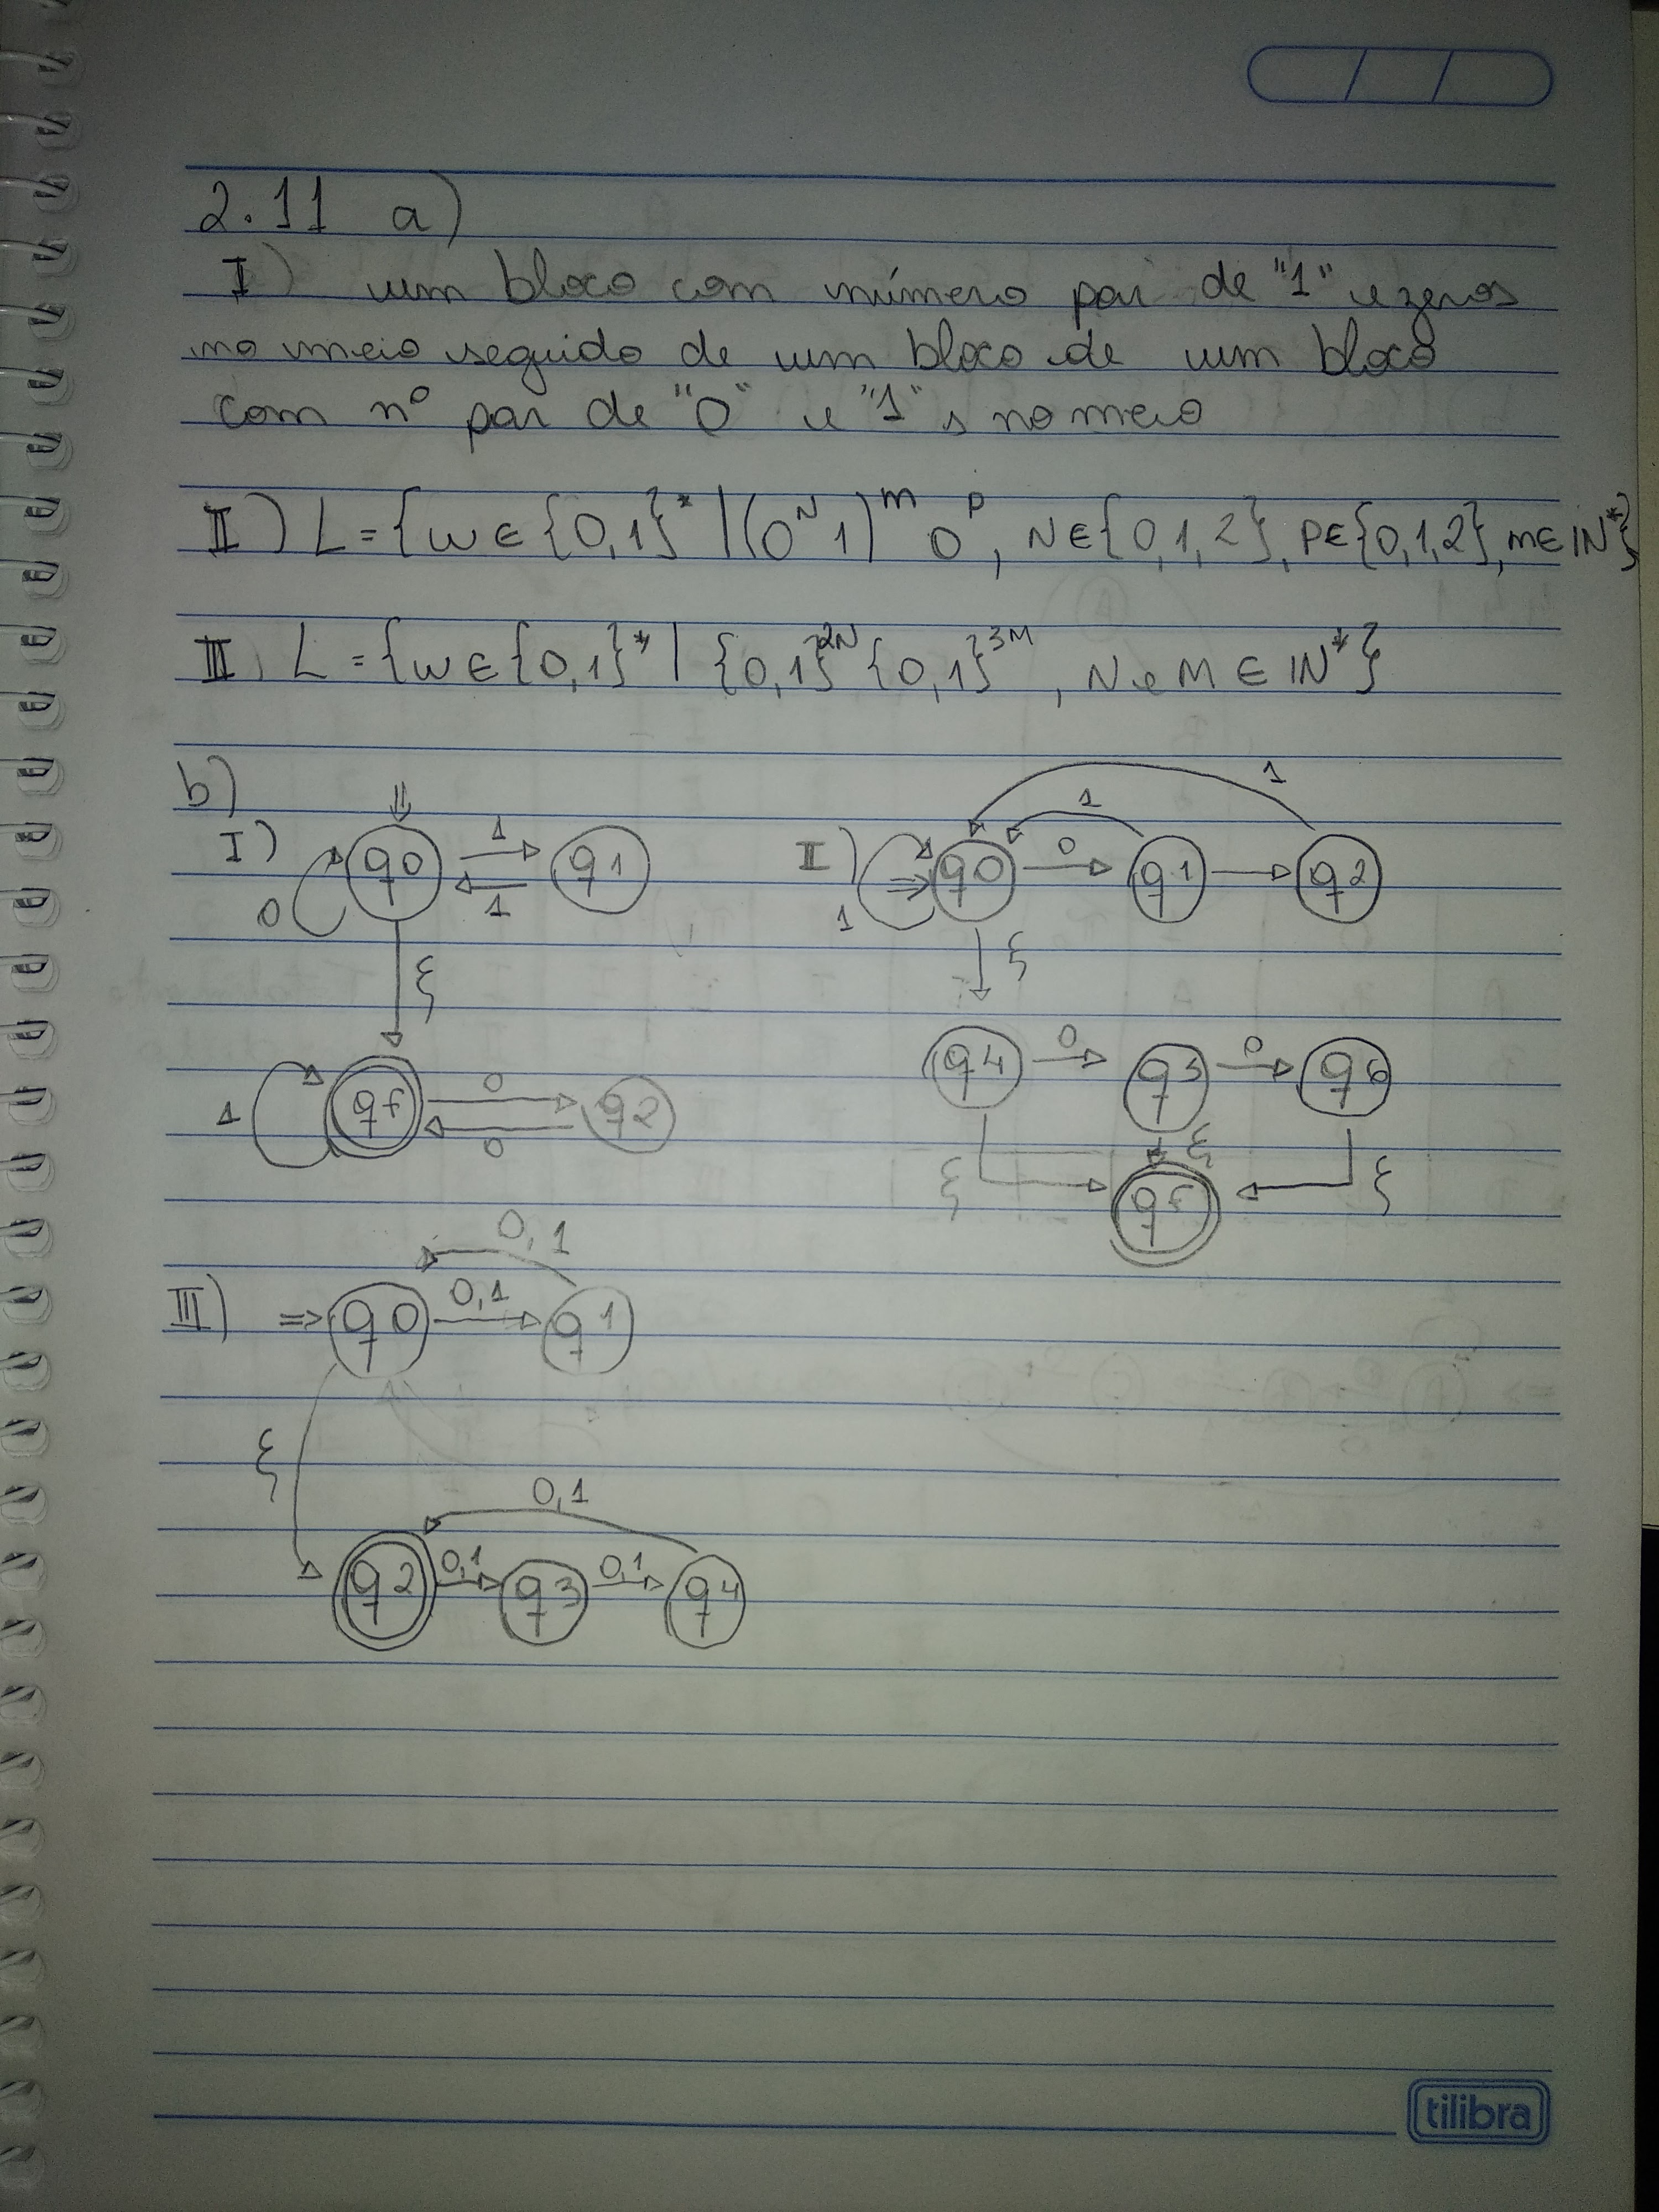 2.11 a)
I) um bloco com número par de "1" e zeros
no meio seguido de um bloco de um bloco
com nº par de "0" e "1" s no meio
II) L = {w ∈ {0,1}* | (0ᴺ1)ᵐ 0ᴾ, N ∈ {0,1,2}, P ∈ {0,1,2}, m ∈ ℕ*}
III. L = {w ∈ {0,1}* | {0,1}²ᴺ {0,1}³ᴹ, N e M ∈ ℕ*}
b)
I) q0 1 q1
0 1
ξ
1 qf 0 q2
0
II) q0 0 q1 q2
1 1 1
ξ
q4 0 q5 0 q6
ξ ξ ξ
qf
III) ⇒ q0 0,1 q1
0,1
ξ
0,1
q2 0,1 q3 0,1 q4
tilibra